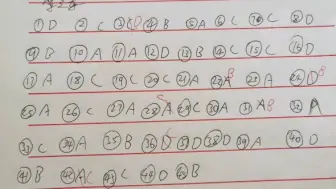 ①D ②C ③D ④B ⑤A ⑥C ⑦C ⑧D
⑨B ⑩A ⑪A ⑫D ⑬B ⑭C ⑮C ⑯D
⑰A ⑱C ⑲C ⑳C ㉑A ㉒B ㉓A ㉔B
㉕A ㉖C ㉗A ㉘C ㉙C ㉚A ㉛B ㉜A
㉝C ㉞A ㉟B ㊱ ㊲D ㊳D ㊴A ㊵D
㊶B ㊷C ㊸C ㊹D ㊺B